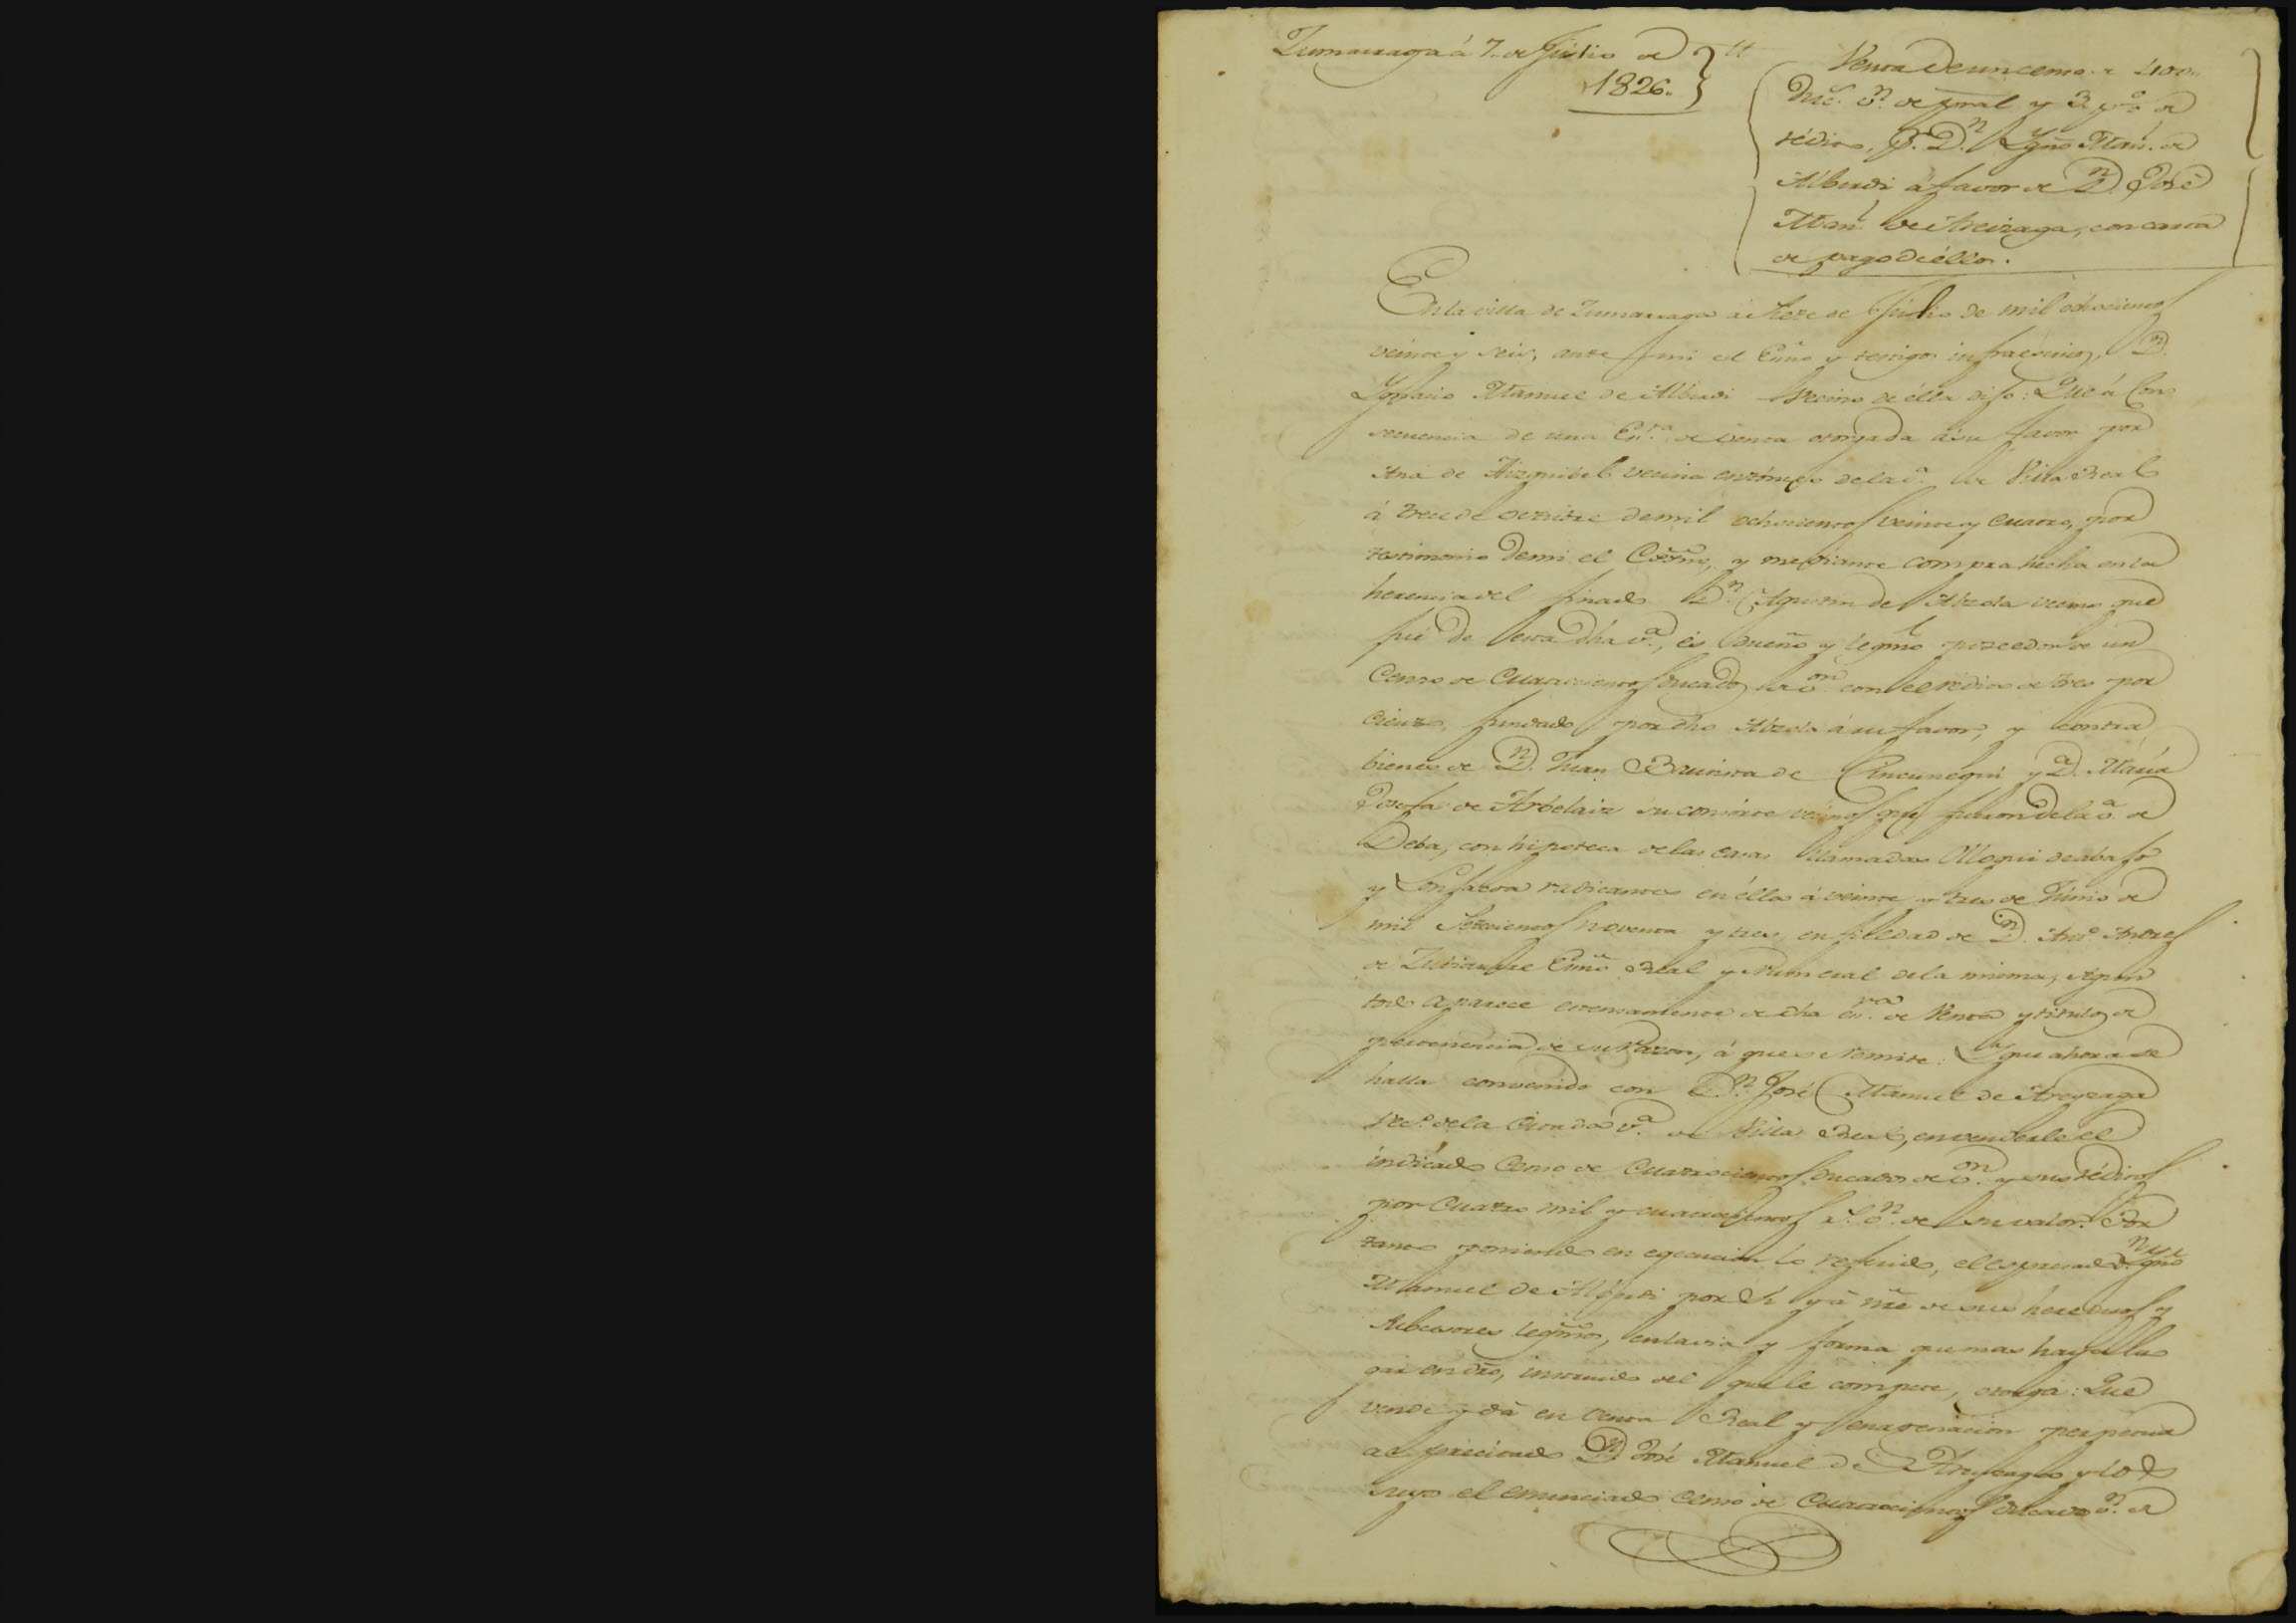 Zumarraga á 7. de Julio de
1826.
Venta de un censo de 400.
Duc.s v.n de pral y 3 p% de
rédito, p.r D.n Ygno Man.l de
Alberdi á favor de D.n José
Man.l de Areizaga, con carta
de pago de éllos.
En la villa de Zumarraga á siete de Julio de mil ochocientos
veinte y seis, ante mi el Essno y testigos infraescritos, D.n
Ygnacio Manuel de Alberdi vecino de élla dijo: Que á con
secuencia de una Es.ra de venta otorgada á su favor por
Ana de Aizquibel vecina entónces de la v.a de Villa Real
á trece de octubre de mil ochocientos veinte y cuatro, por
testimonio de mi el Essno, y mediante compra hecha en la
herencia del finado D.n Agustin de Alzola vecino que
fué de esta dha v.a, és dueño y legmo poseedor de un
Censo de Cuatrocientos Ducados de v.on con el rédito de tres por
ciento, fundado por dho Alzola á su favor, y contra
bienes de D.n Juan Bautista de Cincunegui y D.a María
Josefa de Arbelaiz su consorte vecinos que fueron de la v.a de
Deba, con hipoteca de las casas llamadas Olloqui de abajo
y radicantes en élla á veinte y tres de Junio de
mil Setecientos noventa y tres, en fieldad de D.n Ant.o Andres
de Zubiaurre Essno Real y Numeral de la misma, segun
todo aparece extensamente de dha es.ra de Venta y titulos de
pertenencia de su razon, á que se remite: Y que ahora se
halla convenido con D.n José Manuel de Areyzaga
vec.o de la Citada v.a de Villa Real, en venderle el
indicado Censo de Cuatrocientos Ducados de v.on y sus réditos
por Cuatro mil y cuatrocientos r.s v.n de su valor. Por
tanto poniendo en egecucion lo referido, el espresado D.n Ygno
Manuel de Alberdi por sí y á nre de sus herederos y
subcesores legmos, en la via y forma que mas haya lu
gar en dro, instruido del que le compete, otorga: Que
vende y dá en venta Real y enagenacion perpetua
al precitado D.n José Manuel de Areyzaga y los
suyos el enunciado Censo de Cuatrocientos Ducados v.n de